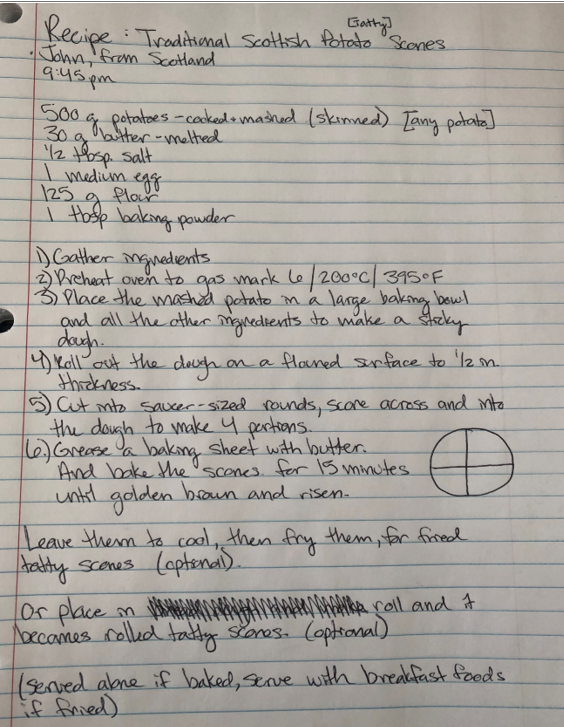 [tatty]
Recipe: Traditional Scottish Potato Scones
John, from Scotland
9:45pm
500 g potatoes - cooked + mashed (skinned) [any potato]
30 g butter - melted
1/2 tbsp. salt
1 medium egg
125 g flour
1 tbsp baking powder
1) Gather ingredients
2) Preheat oven to gas mark 6/200°C/395°F
3) Place the mashed potato in a large baking bowl
and all the other ingredients to make a sticky
dough.
4) Roll out the dough on a floured surface to 1/2 in.
thickness.
5) Cut into saucer-sized rounds, score across and into
the dough to make 4 portions.
6.) Grease a baking sheet with butter.
And bake the scones for 15 minutes
until golden brown and risen.
Leave them to cool, then fry them, for fried
tatty scones (optional).
Or place in roll and it
becomes rolled tatty scones. (optional)
(served alone if baked, serve with breakfast foods
if fried)